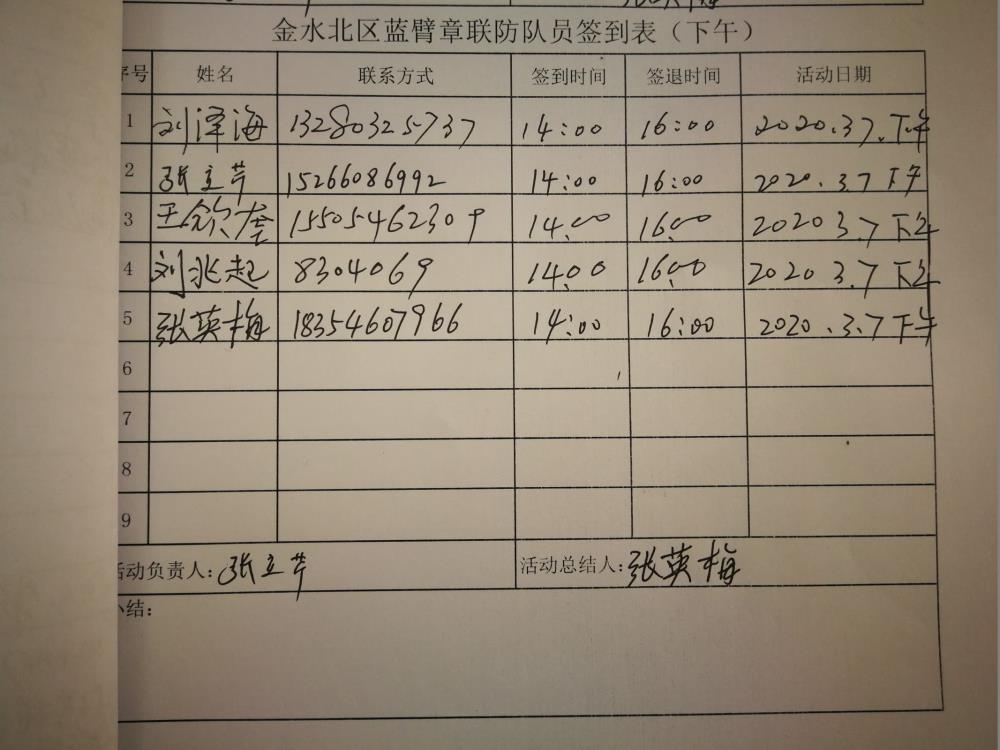 金水北区蓝臂章联防队员签到表（下午）
序号 姓名 联系方式 签到时间 签退时间 活动日期
1 刘泽海 13280325737 14:00 16:00 2020.3.7.下午
2 张立芹 15266086992 14:00 16:00 2020.3.7 下午
3 王 15505462309 14:00 16:00 2020 3.7 下午
4 刘兆起 8304069 14:00 16:00 2020 3.7 下午
5 张英梅 18354607966 14:00 16:00 2020.3.7 下午
6
7
8
9
活动负责人：张立芹 活动总结人：张英梅
小结：